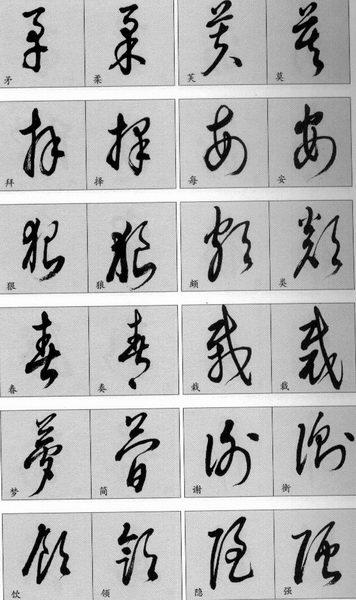 矛 柔 芙 莫
拜 择 每 安
狠 狼 颇 类
春 奏 栽 载
梦 简 谢 衡
饮 领 隐 强